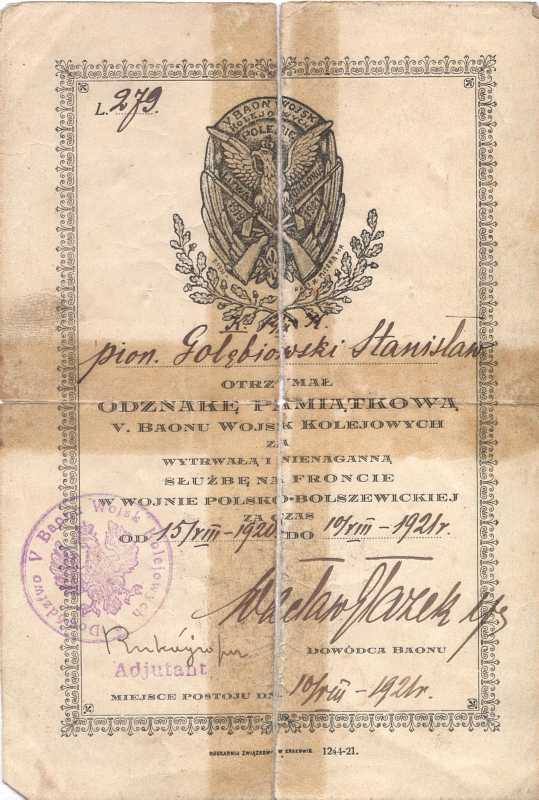 L. 279.
V BAON WOJSK
KOLEJOWYCH
POLESIE
pion. Gołębiowski Stanisław
OTRZYMAŁ
ODZNAKĘ PAMIĄTKOWĄ
V. BAONU WOJSK KOLEJOWYCH
ZA
WYTRWAŁĄ I NIENAGANNĄ
SŁUŻBĘ NA FRONCIE
W WOJNIE POLSKO-BOLSZEWICKIEJ
ZA CZAS
OD 15/VIII-1920 DO 10/VIII-1921r.
Dowództwo V Baonu Wojsk Kolejowych
Wacław Głazek
Adjutant
DOWÓDCA BAONU
MIEJSCE POSTOJU DN. 10/VIII-1921r.
DRUKARNIA ZWIĄZKOWA W KRAKOWIE. 1244-21.